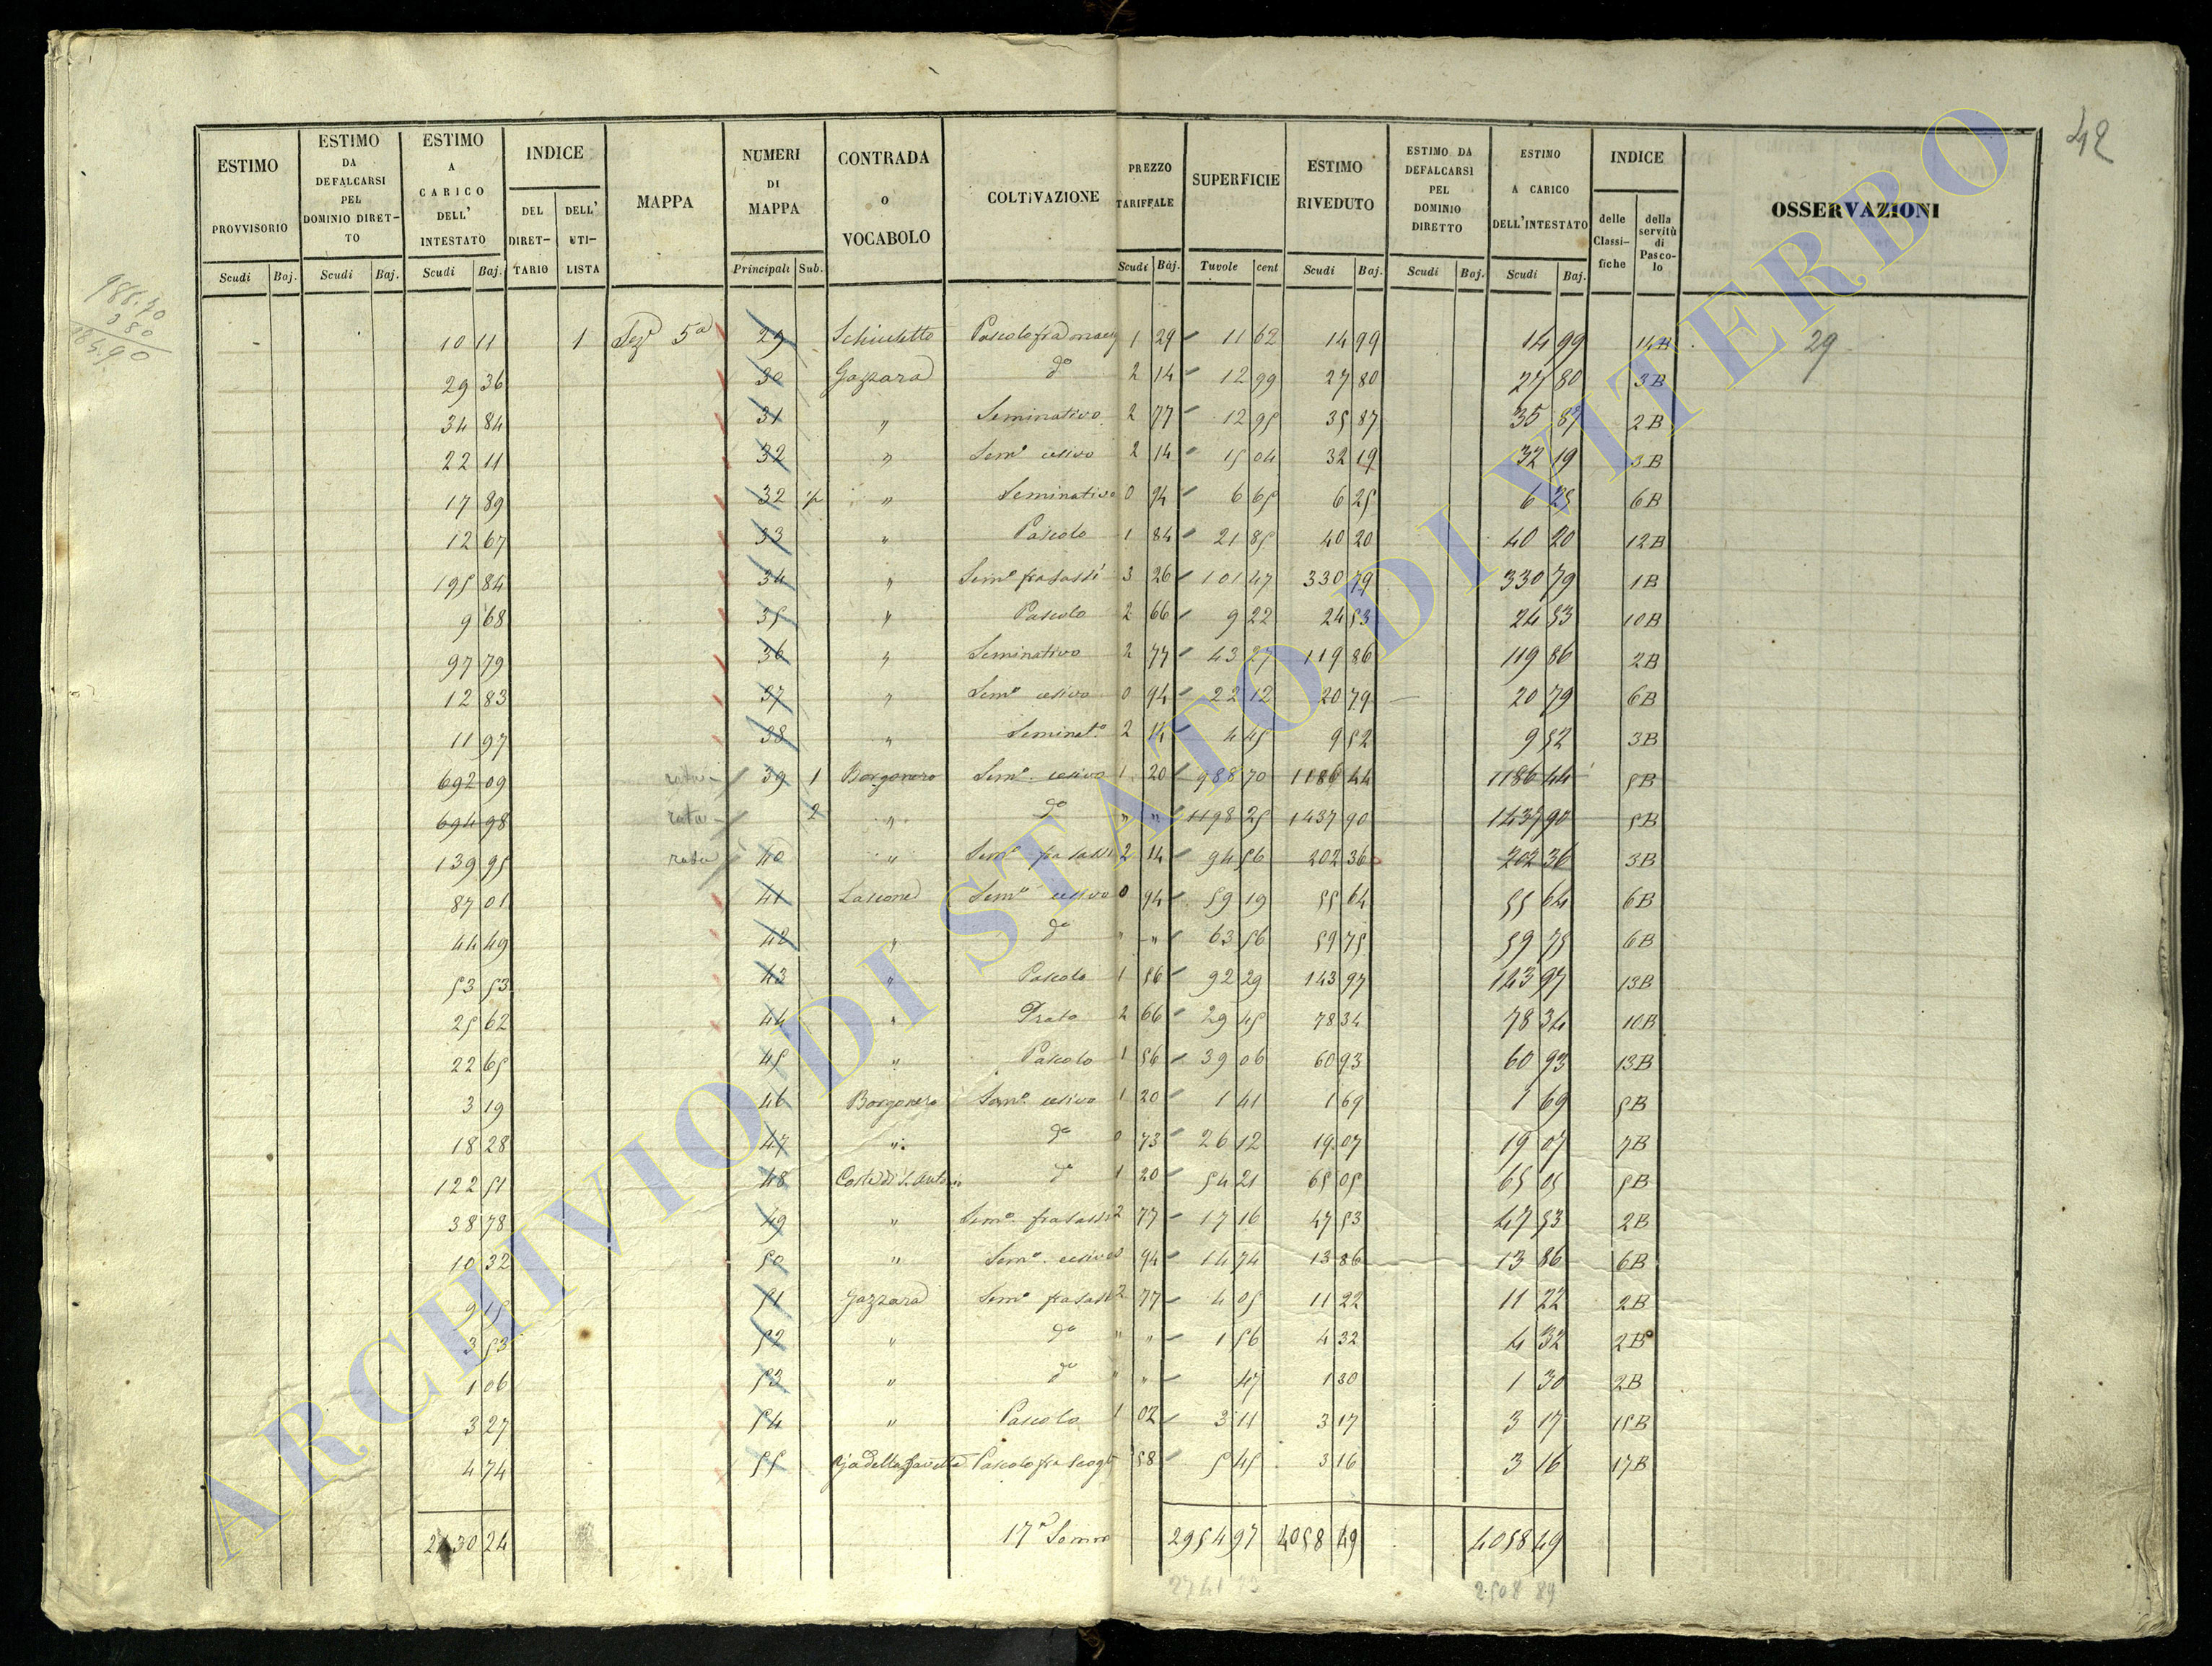 42
ESTIMO PROVVISORIO | ESTIMO DA DEFALCARSI PEL DOMINIO DIRET-TO | ESTIMO A CARICO DELL' INTESTATO | INDICE | MAPPA | NUMERI DI MAPPA | CONTRADA O VOCABOLO | COLTIVAZIONE | PREZZO TARIFFALE | SUPERFICIE | ESTIMO RIVEDUTO | ESTIMO DA DEFALCARSI PEL DOMINIO DIRETTO | ESTIMO A CARICO DELL'INTESTATO | INDICE | OSSERVAZIONI
DEL DIRET-TARIO | DELL' UTI-LISTA | delle Classi-fiche | della servitù di Pasco-lo
Scudi | Baj. | Scudi | Baj. | Scudi | Baj. | Principali | Sub. | Scudi | Baj. | Tavole | cent | Scudi | Baj. | Scudi | Baj. | Scudi | Baj.
10 11 | 1 | Seze 5a | 29 | | 1 29 | 11 62 | 14 99 | 14 99 | 14B | 29
29 36 | 30 | Gazzara | do | 2 14 | 12 99 | 27 80 | 27 80 | 3B
34 84 | 31 | " | Seminativo | 2 77 | 12 95 | 35 87 | 35 87 | 2B
22 11 | 32 | " | Semo cesivo | 2 14 | 15 04 | 32 19 | 32 19 | 3B
17 89 | 32 ½ | " | Seminativo | 0 94 | 6 65 | 6 25 | 6 25 | 6B
12 67 | 33 | " | Pascolo | 1 84 | 21 85 | 40 20 | 40 20 | 12B
195 84 | 34 | " | Semo fra sassi | 3 26 | 101 47 | 330 79 | 330 79 | 1B
9 68 | 35 | " | Pascolo | 2 66 | 9 22 | 24 53 | 24 53 | 10B
97 79 | 36 | " | Seminativo | 2 77 | 43 27 | 119 86 | 119 86 | 2B
12 83 | 37 | " | Semo cesivo | 0 94 | 22 12 | 20 79 | 20 79 | 6B
11 97 | 38 | " | Seminato | 2 14 | 4 45 | 9 52 | 9 52 | 3B
692 09 | rata | 39 | 1 | Borgonero | Semo cesivo | 1 20 | 988 70 | 1186 44 | 1186 44 | 5B
694 98 | rata | 2 | " | do | " " | 1198 25 | 1437 90 | 1437 90 | 5B
139 95 | rata | 40 | " | Semo fra sassi | 2 14 | 94 56 | 202 36 | 202 36 | 3B
87 01 | 41 | Lascone | Semo cesivo | 0 94 | 59 19 | 55 64 | 55 64 | 6B
44 49 | 42 | " | do | " " | 63 56 | 59 75 | 59 75 | 6B
53 53 | 43 | " | Pascolo | 1 56 | 92 29 | 143 97 | 143 97 | 13B
25 62 | 44 | " | Prato | 2 66 | 29 45 | 78 34 | 78 34 | 10B
22 65 | 45 | " | Pascolo | 1 56 | 39 06 | 60 93 | 60 93 | 13B
3 19 | 46 | Borgonero | Semo cesivo | 1 20 | 1 41 | 1 69 | 1 69 | 5B
18 28 | 47 | " | do | 0 73 | 26 12 | 19 07 | 19 07 | 7B
122 51 | 48 | Coste di S. Antonio | do | 1 20 | 54 21 | 65 05 | 65 05 | 5B
38 78 | 49 | " | Semo fra sassi | 2 77 | 17 16 | 47 53 | 47 53 | 2B
10 32 | 50 | " | Semo cesivo | 0 94 | 14 74 | 13 86 | 13 86 | 6B
9 15 | 51 | Gazzara | Semo fra sassi | 2 77 | 4 05 | 11 22 | 11 22 | 2B
3 53 | 52 | " | do | " " | 1 56 | 4 32 | 4 32 | 2B
1 06 | 53 | " | do | " " | 47 | 1 30 | 1 30 | 2B
3 27 | 54 | " | Pascolo | 1 02 | 3 11 | 3 17 | 3 17 | 15B
4 74 | 55 | | Pascolo fra scogli | 58 | 5 45 | 3 16 | 3 16 | 17B
30 24 | 17a Somma | 2954 97 | 4058 49 | 4058 49
2508 89
ARCHIVIO DI STATO DI VITERBO